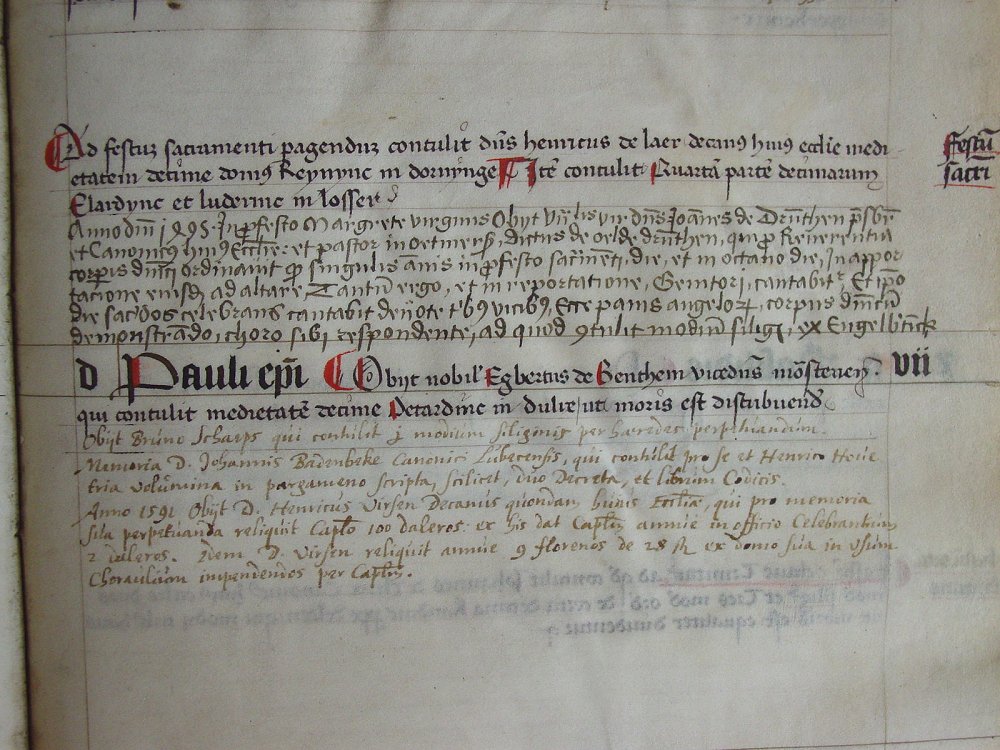 Ad festuz sacramenti pagenduz contulit dñs henricus de laer decan9 hui9 ecclie medi
festũ
etatem decime dom9 Reymnc in dornynge Itẽ contulit Quartã partẽ decimarum
sacri
Elardync et luderinc in losser
Anno dñi 1495 In pfesto Margrete virginis Obijt vñlis vir dñs Joãnes de Drũthen psbr
et Canonicus hui9 Ecclie: et pastor in oetmerß, dictus de oelde drũthen, qui p Reverentia
corpis dñici ordinavit qp singulis ãnis in pfesto sacrmeti, die, et in octano die, In appor
tacione eiusd, ad altare Tantũ ergo, et in reportatione, Genitori, cantabitr Et ipo
die sacdos celebrans cantabit deuote tb9 vicib9, Ecce panis angelorꝝ, corpus dñicũ
demonstrãdo, choro sibi respondente, ad quod 9tulit modiũ siligi, ex Engelbtinck
d Pauli epi Obijt nobil Egbertus de Benthem vicedñs mõsterien vii
qui contulit medietatẽ decime Detardinc in dulre, uti moris est distribuend
Obijt Bruno Scharps qui contulit j modium siliginis per hæredes perpetuandum.
Memoria D. Johannis Badenbeke Canonici Lubecensis, qui contulit pro se et Henrico Hove
tria volumina in pargameno scripta, scilicet, duo Decreta, et librum Codicis.
Anno 1591 Obijt D. Henricus Virsen Decanus quondam huius Ecclesiæ, qui pro memoria
sua perpetuanda reliquit Caplo 100 daleros: ex his dat Caplm annue in officio Celebrantium
2 daleros. Idem D. Virsen reliquit annue 9 florenos de 28 ex domo sua in usum
Choraulium impendendos per Caplm.